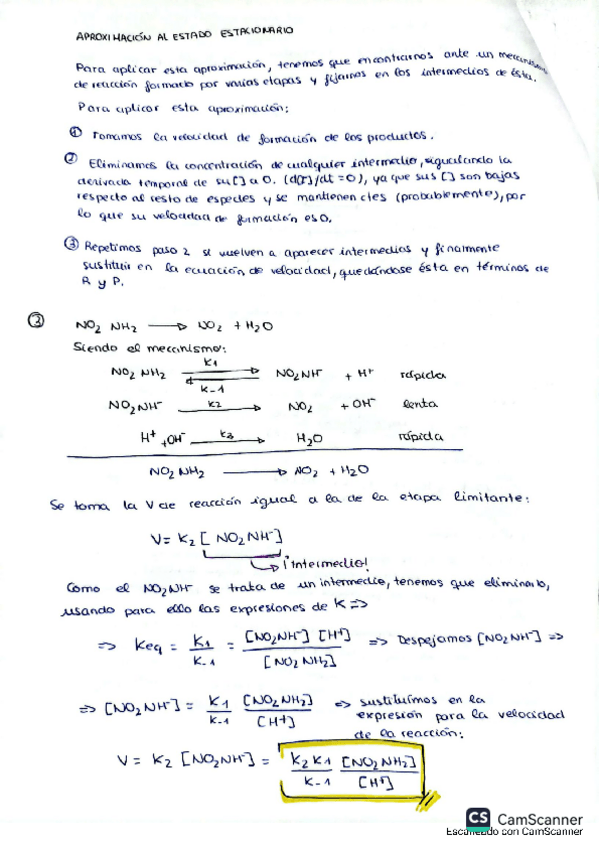 APROXIMACIÓN AL ESTADO ESTACIONARIO
Para aplicar esta aproximación, tenemos que encontrarnos ante un mecanismo
de reacción formado por varias etapas y fijarnos en los intermedios de ésta.
Para aplicar esta aproximación:
① Tomamos la velocidad de formación de los productos.
② Eliminamos la concentración de cualquier intermedio, igualando la
derivada temporal de su [] a 0. (d[I]/dt = 0), ya que sus [] son bajas
respecto al resto de especies y se mantienen ctes (probablemente), por
lo que su velocidad de formación es 0.
③ Repetimos paso 2 si vuelven a aparecer intermedios y finalmente
sustituir en la ecuación de velocidad, quedándose ésta en términos de
R y P.
③ NO2 NH2 → NO2 + H2O
Siendo el mecanismo:
NO2 NH2 ⇌ K1 K-1 NO2NH⁻ + H⁺ rápida
NO2NH⁻ → K2 NO2 + OH⁻ lenta
H⁺ + OH⁻ → K3 H2O rápida
NO2 NH2 → NO2 + H2O
Se toma la V de reacción igual a la de la etapa limitante:
V = K2 [NO2NH⁻]
¡Intermedio!
Como el NO2NH⁻ se trata de un intermedio, tenemos que eliminarlo,
usando para ello las expresiones de K ⇒
⇒ Keq = K1/K-1 = [NO2NH⁻] [H⁺]/[NO2NH2] ⇒ Despejamos [NO2NH⁻] ⇒
⇒ [NO2NH⁻] = K1/K-1 [NO2NH2]/[H⁺] ⇒ sustituímos en la
expresión para la velocidad
de la reacción:
V = K2 [NO2NH⁻] = K2 K1/K-1 [NO2NH2]/[H⁺]
CS CamScanner
Escaneado con CamScanner